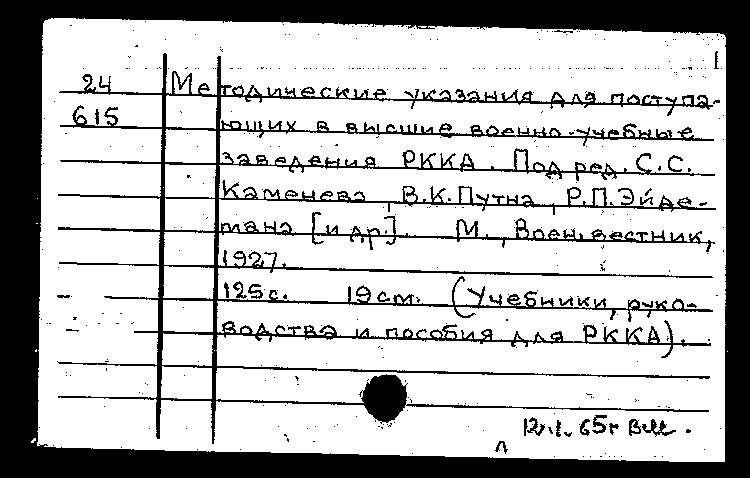 24 Методические указания для поступа-
615 ющих в высшие военно-учебные
заведения РККА. Под ред. С.С.
Каменева, В.К.Путна, Р.П.Эйде-
мана [и др.]. М., Воен.вестник,
1927.
125с. 19см. (Учебники, руко-
водства и пособия для РККА).
65г